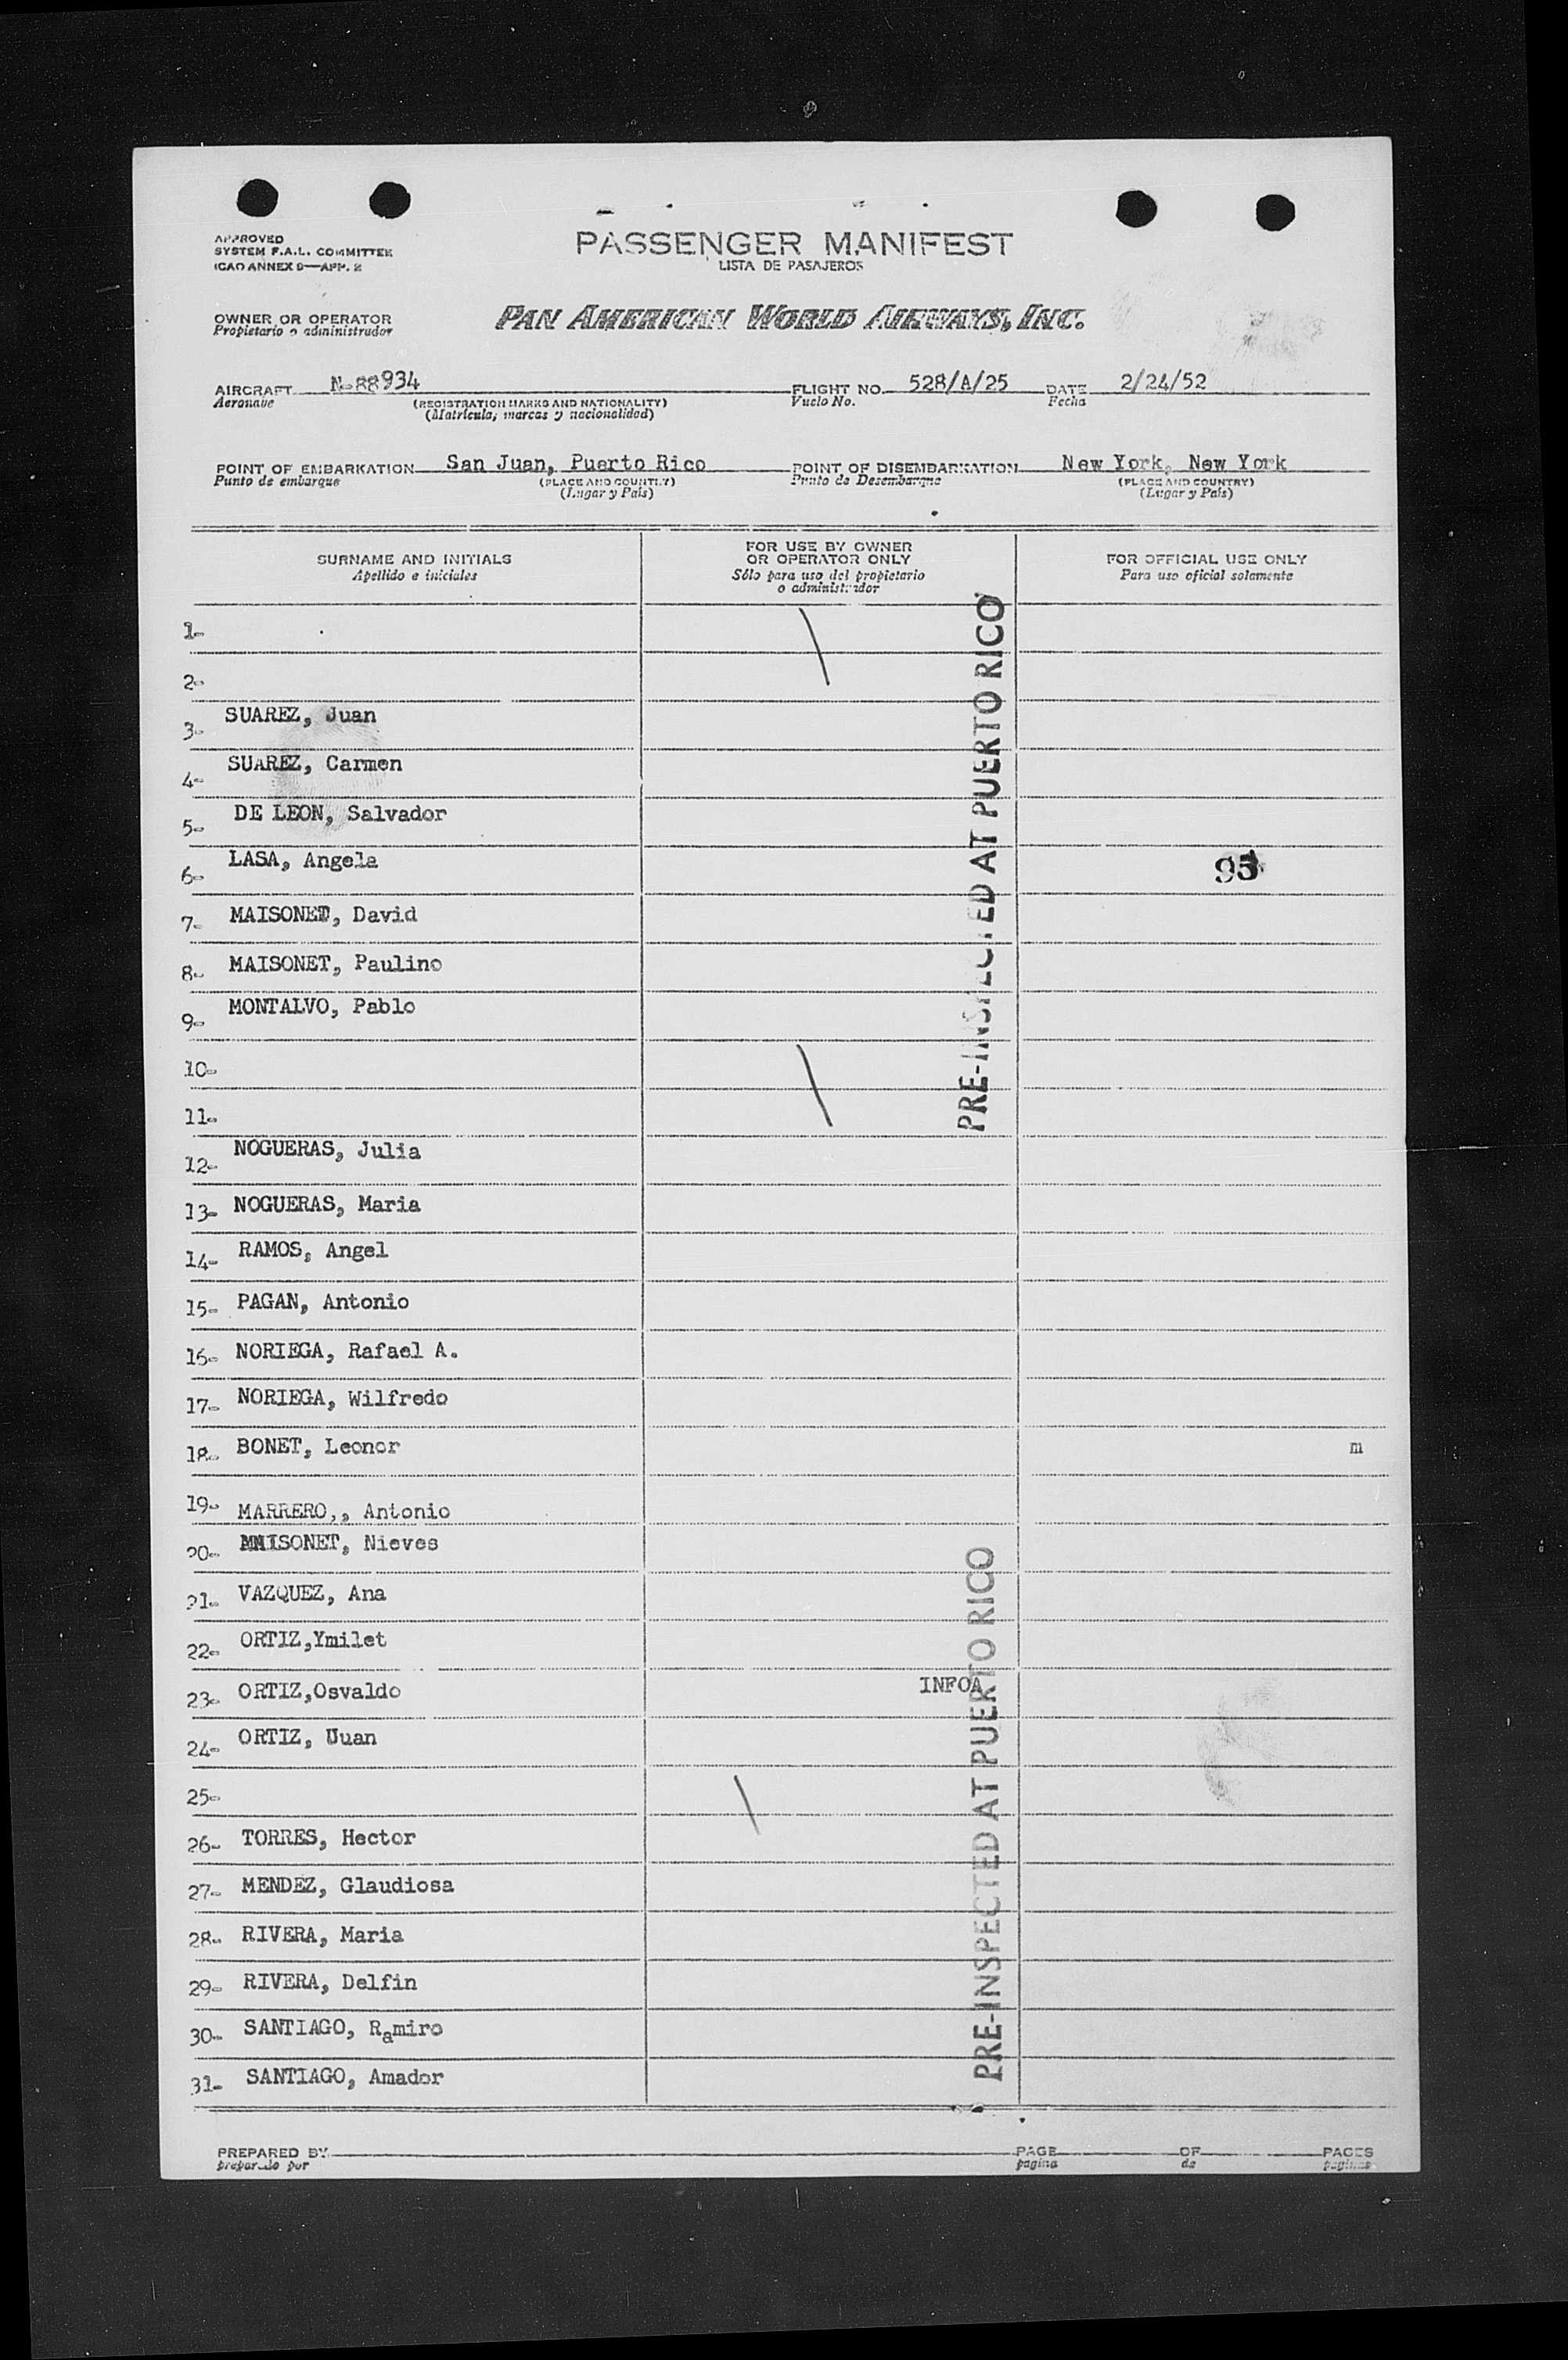 APPROVED
SYSTEM F.A.L. COMMITTEE
ICAO ANNEX 9—APP. 2
PASSENGER MANIFEST
LISTA DE PASAJEROS
OWNER OR OPERATOR
Propietario o administrador
PAN AMERICAN WORLD AIRWAYS, INC.
AIRCRAFT N-88934 FLIGHT NO. 528/A/25 DATE 2/24/52
Aeronave (REGISTRATION MARKS AND NATIONALITY) Vuelo No. Fecha
(Matrícula, marcas y nacionalidad)
POINT OF EMBARKATION San Juan, Puerto Rico POINT OF DISEMBARKATION New York, New York
Punto de embarque (PLACE AND COUNTRY) Punto de Desembarque (PLACE AND COUNTRY)
(Lugar y País) (Lugar y País)
SURNAME AND INITIALS
Apellido e iniciales
FOR USE BY OWNER
OR OPERATOR ONLY
Sólo para uso del propietario
o administrador
FOR OFFICIAL USE ONLY
Para uso oficial solamente
1-
2-
3- SUAREZ, Juan
4- SUAREZ, Carmen
5- DE LEON, Salvador
6- LASA, Angela
95
7- MAISONET, David
8- MAISONET, Paulino
9- MONTALVO, Pablo
10-
11-
PRE-INSPECTED AT PUERTO RICO
12- NOGUERAS, Julia
13- NOGUERAS, Maria
14- RAMOS, Angel
15- PAGAN, Antonio
16- NORIEGA, Rafael A.
17- NORIEGA, Wilfredo
18- BONET, Leonor m
19- MARRERO,, Antonio
20- MAISONET, Nieves
21- VAZQUEZ, Ana
22- ORTIZ,Ymilet
23- ORTIZ,Osvaldo INFOA
24- ORTIZ, Uuan
25-
26- TORRES, Hector
27- MENDEZ, Glaudiosa
28- RIVERA, Maria
29- RIVERA, Delfin
30- SANTIAGO, Ramiro
31- SANTIAGO, Amador
PRE-INSPECTED AT PUERTO RICO
PREPARED BY PAGE OF PAGES
preparado por pagina de paginas